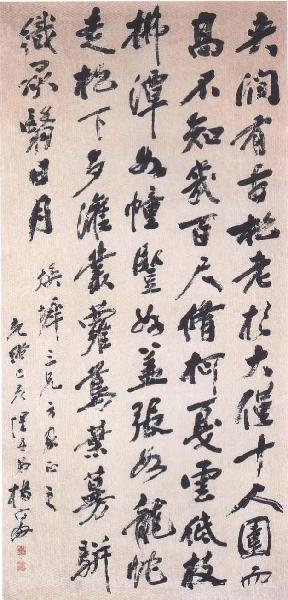 夾澗有古松老杉大僅十人圍而
高不知幾百尺脩柯戛雲低枝
拂潭如幢豎如蓋張如龍蛇
走松下多灌叢蘿蔦葉蔓駢
織承翳日月
三兄方家正之
光緒己亥惺吾弟楊守敬